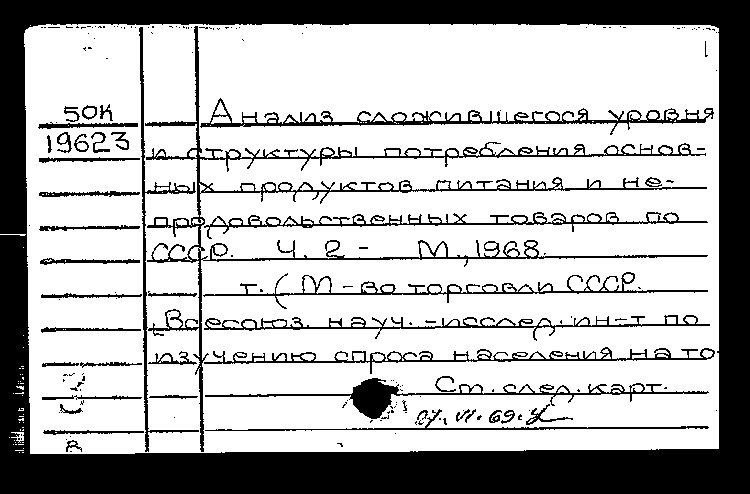 50К
19623
Анализ сложившегося уровня
и структуры потребления основ-
ных продуктов питания и не-
продовольственных товаров по
СССР. Ч. 2 - М., 1968.
т. (М-во торговли СССР.
Всесоюз. науч.-исслед. ин-т по
изучению спроса населения на то
См. след. карт.